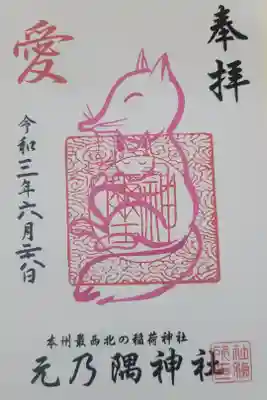 奉拝
愛
令和三年六月二十八日
本州最西北の稲荷神社
元乃隅神社